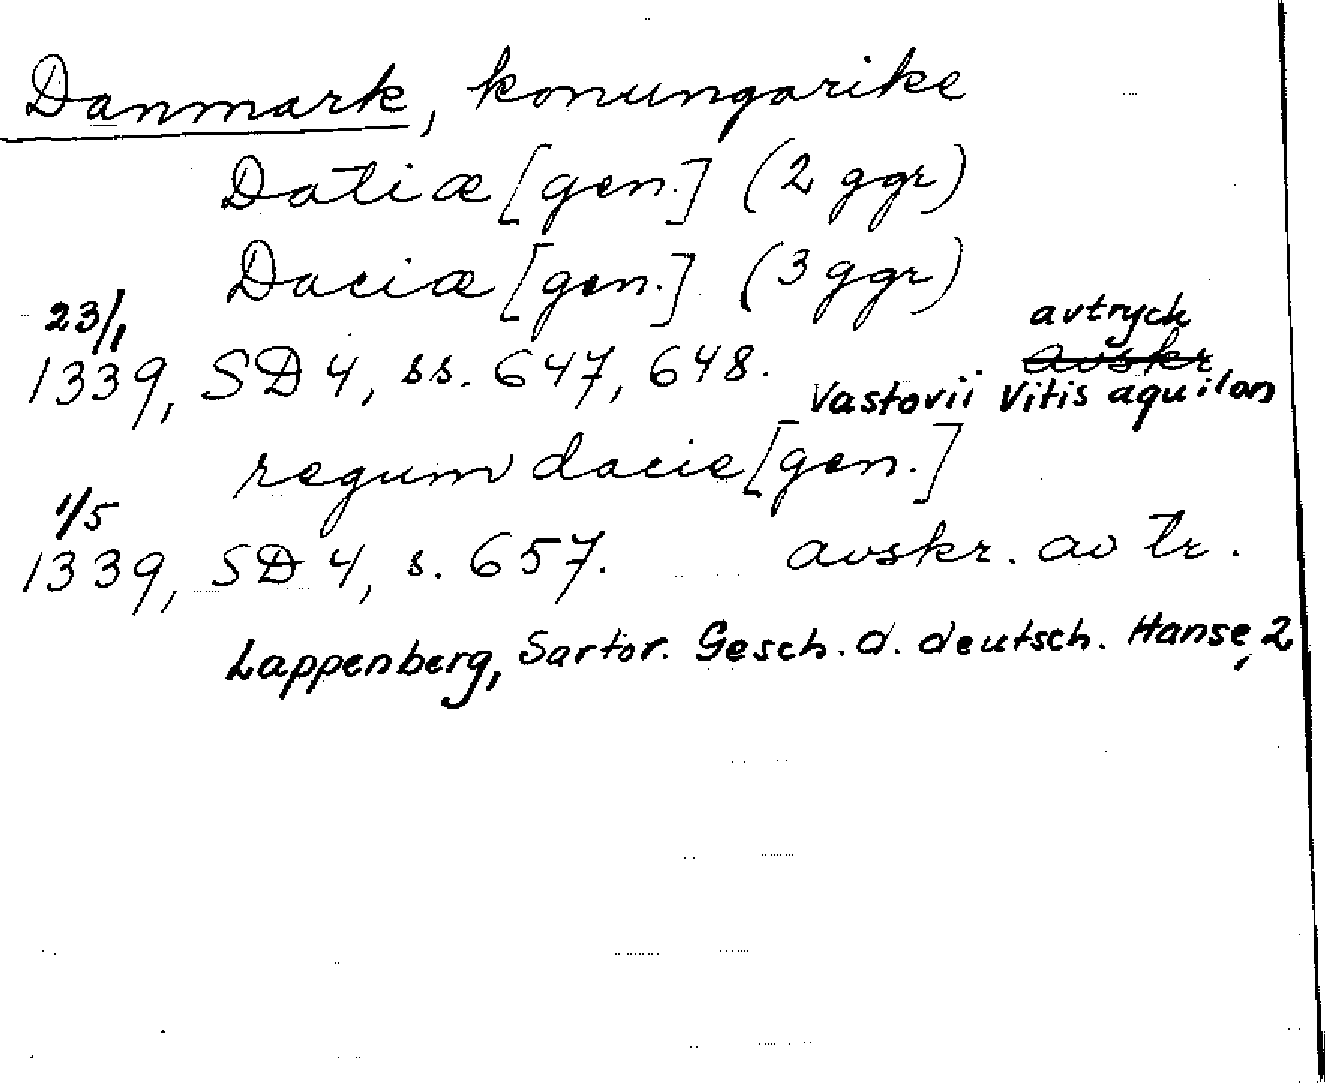 Danmark, konungarike
Datiæ [gen.] (2 ggr)
Daciæ [gen.] (3 ggr)
23/1 avtryck
1339, SD 4, ss. 647, 648. avskr
Vastovii Vitis aquilon
regum dacie [gen.]
1/5
1339, SD 4, s. 657. avskr. av tr.
Lappenberg, Sartor. Gesch. d. deutsch. Hanse, 2